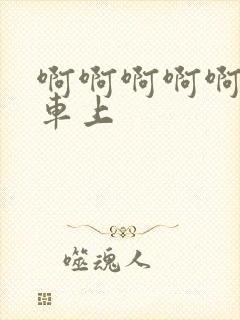 啊啊啊啊啊
車上
噬魂人